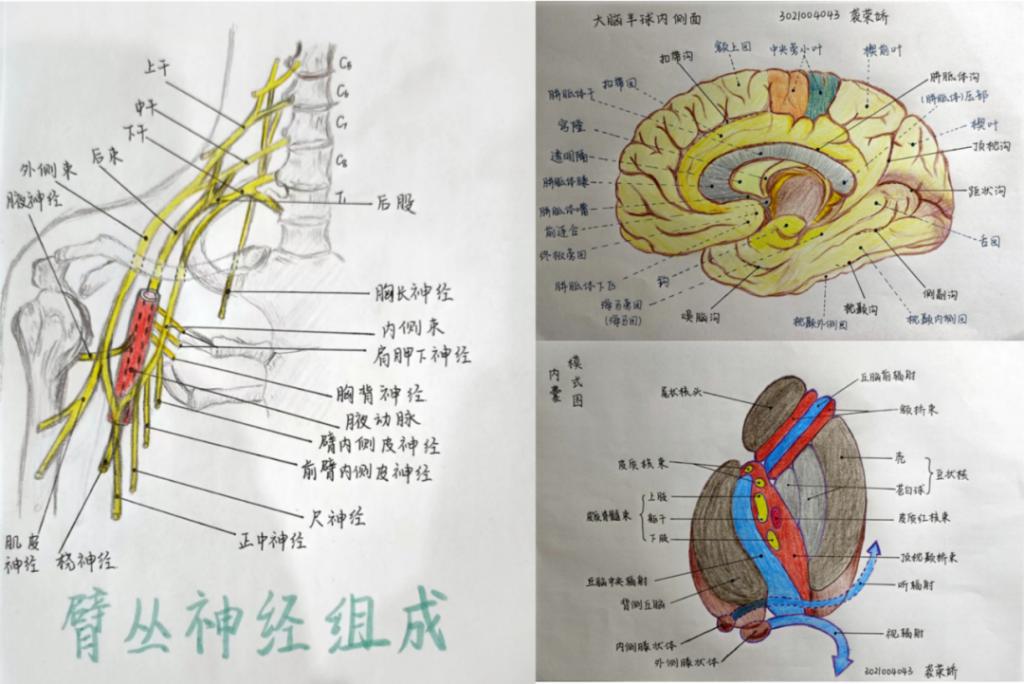 上干
中干
下干
后束
外侧束
腋神经
C5
C6
C7
C8
T1
后股
胸长神经
内侧束
肩胛下神经
胸背神经
腋动脉
臂内侧皮神经
前臂内侧皮神经
尺神经
正中神经
桡神经
肌皮
神经
臂丛神经组成
大脑半球内侧面
3021004043
额上回
中央旁小叶
楔前叶
扣带沟
扣带回
胼胝体干
穹隆
透明隔
胼胝体膝
胼胝体嘴
前连合
终板旁回
胼胝体下回
海马旁回
(海马回)
钩
嗅脑沟
枕颞外侧回
枕颞沟
枕颞内侧回
侧副沟
舌回
距状沟
顶枕沟
楔叶
(胼胝体)压部
胼胝体沟
内囊
模式图
尾状核头
丘脑前辐射
额桥束
皮质核束
壳
苍白球
豆状核
上肢
躯干
下肢
皮质脊髓束
皮质红核束
顶枕颞桥束
听辐射
丘脑中央辐射
背侧丘脑
视辐射
内侧膝状体
外侧膝状体
3021004043